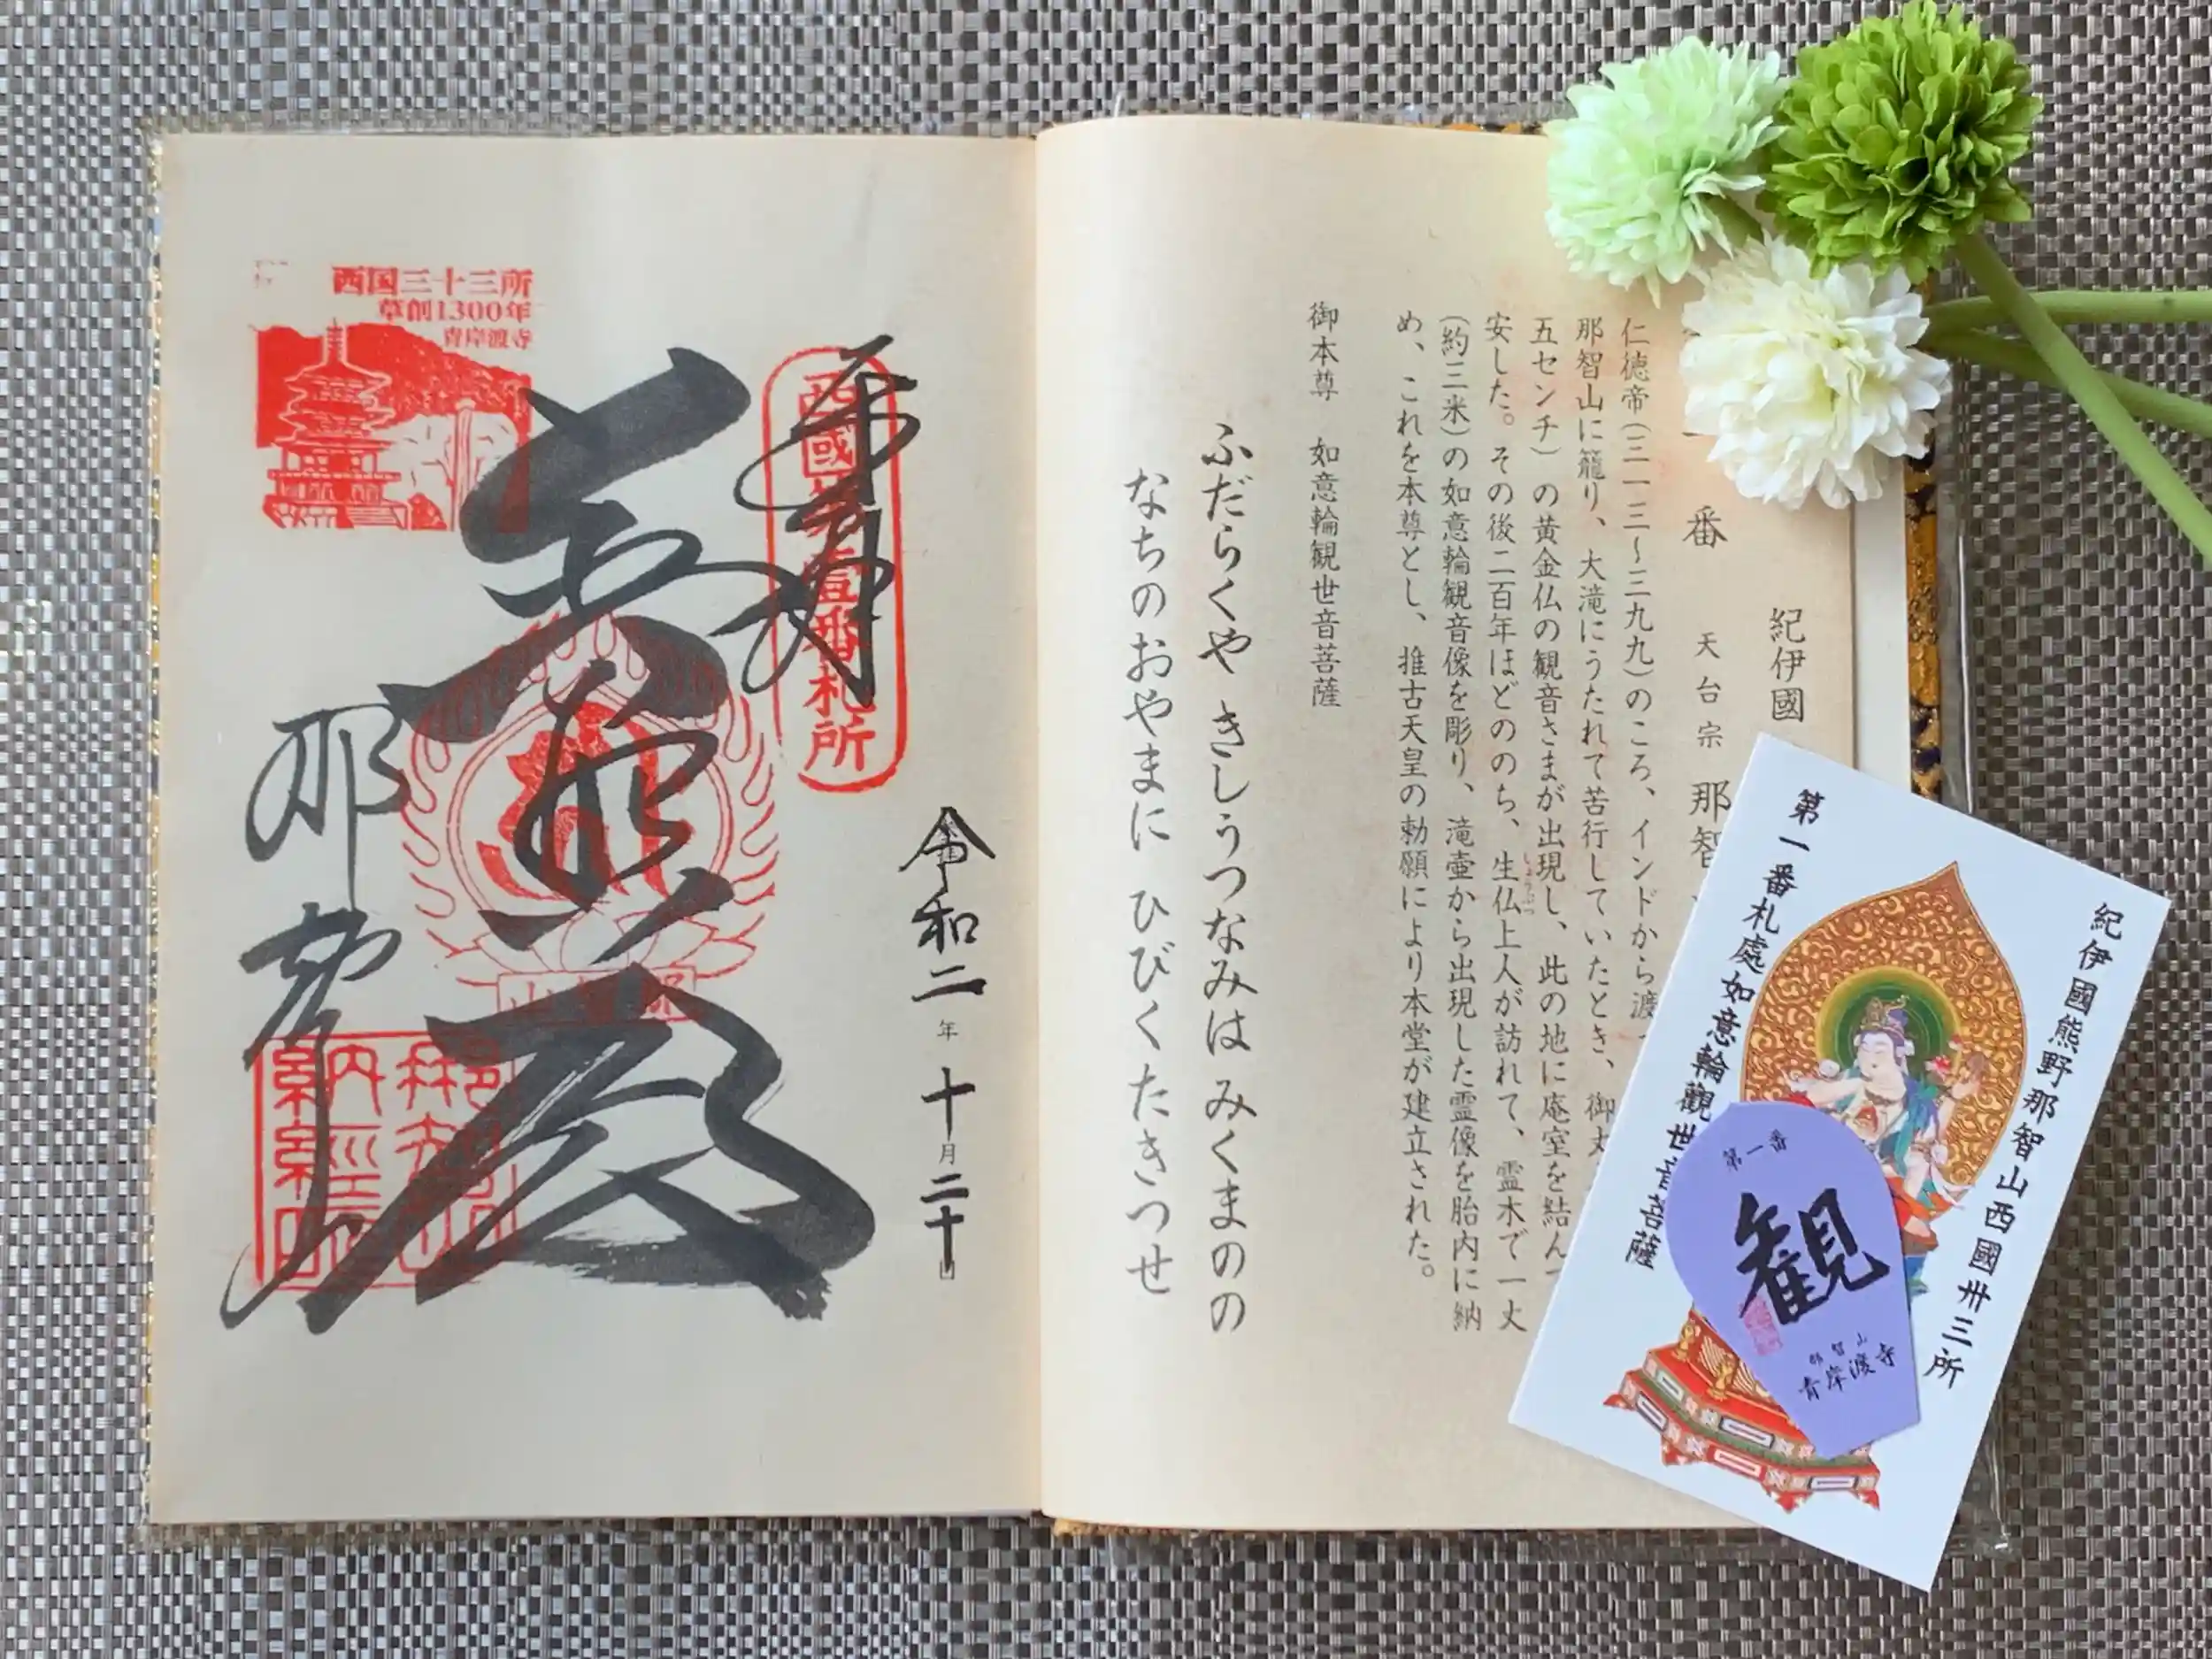 紀伊國
番 天台宗 那智
仁徳帝(三一三～三九九)のころ、インドから渡
那智山に籠り、大滝にうたれて苦行していたとき、御丈
五センチ)の黄金仏の観音さまが出現し、此の地に庵室を結ん
安した。その後二百年ほどののち、生仏上人が訪れて、霊木で一丈
(約三米)の如意輪観音像を彫り、滝壷から出現した霊像を胎内に納
め、これを本尊とし、推古天皇の勅願により本堂が建立された。
御本尊 如意輪観世音菩薩
ふだらくや きしうつなみは みくまのの
なちのおやまに ひびくたきつせ
令和二年十月二十日
奉拝
西國第壹番札所
西国三十三所
草創1300年
青岸渡寺
那智山
納経印
紀伊國熊野那智山西國卅三所
第一番札處如意輪觀世音菩薩
第一番
観
那智山
青岸渡寺